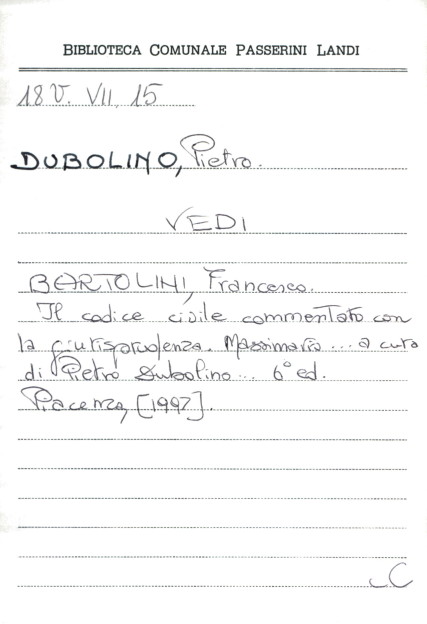 BIBLIOTECA COMUNALE PASSERINI LANDI
18 V. VII. 15
DUBOLINO, Pietro.
VEDI
BARTOLINI, Francesco.
Il codice civile commentato con
la giurisprudenza. Massimario... a cura
di Pietro Dubolino... 6° ed.
Piacenza, [1997].